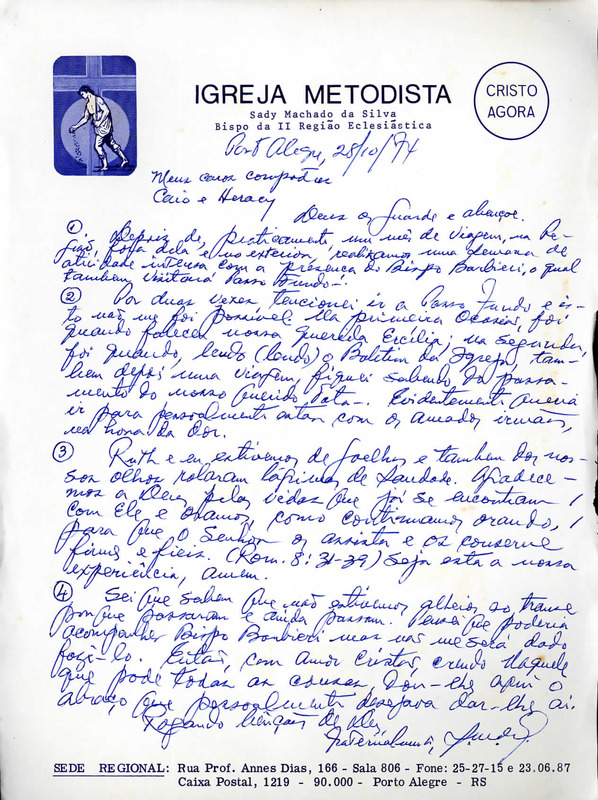 IGREJA METODISTA
Sady Machado da Silva
Bispo da II Região Eclesiástica
CRISTO
AGORA
Port Alegre, 28/10/74
Meus caros compadres
Caio e Heracy
Deus os guarde e abençoe.
1. Depois de, praticamente, um mês de viagem, na Re-
gião, fora dela e no exterior, realizamos uma semana de
atividade intensa com a presença do Bispo Barbieri, o qual
também visitará Passo Fundo.
2 Por duas vezes, tencionei ir a Passo Fundo e is-
to não me foi possível. Na primeira ocasião, foi
quando faleceu nossa querida Ercília; na segunda,
foi quando, lendo (lendo) o Boletim da Igreja, tam-
bém depois uma viagem, fiquei sabendo do passa-
mento do nosso querido. Evidentemente queria
ir para pessoalmente estar com os amados irmãos,
na hora da dor.
3 Ruth e eu estivemos de joelhos e também dos nos-
sos olhos rolaram lágrimas de saudade. Agradece-
mos a Deus pelas vidas que já se encontram
com Ele e oramos, como continuamos orando,
para que o Senhor os assista e os conserve
firmes e fieis. (Rom. 8:31-39) Seja esta a nossa
experiência, amém.
4 Sei que sabem que não estivemos alheios ao transe
por que passaram e ainda passam. Pensei que poderia
acompanhar Bispo Barbieri mas não me será dado
fazê-lo. Então, com amor cristão, crendo naquele
que pode todas as cousas, dou-lhes aqui o
abraço que pessoalmente desejava dar-lhes aí.
Rogando bênçãos de Deus
fraternalmente,
SEDE REGIONAL: Rua Prof. Annes Dias, 166 - Sala 806 - Fone: 25-27-15 e 23.06.87
Caixa Postal, 1219 - 90.000 - Porto Alegre - RS